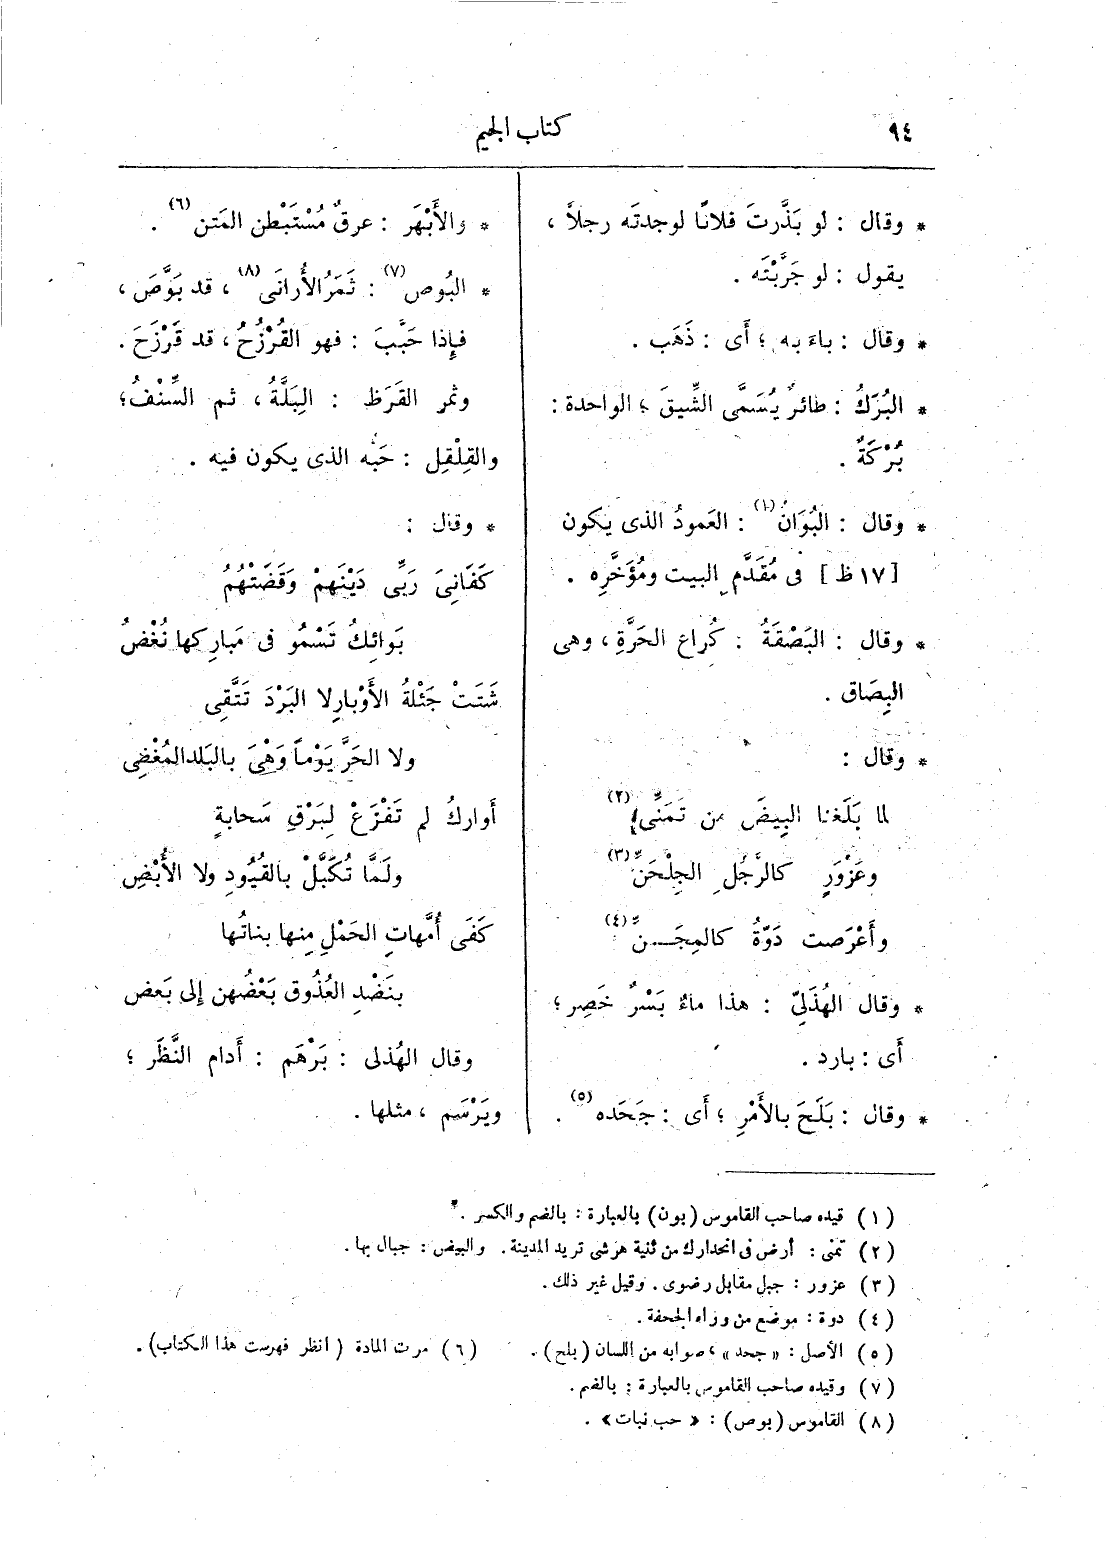 ٩٤
كتاب الجيم
* وقال : لو بَذَّرتَ فلانًا لوجدتَه رجلاً ،
يقول : لو جَرَّبْتَه .
* وقال : باءَ به ؛ أَى : ذَهَب .
* البُرَكُ : طائرٌ يُسَمَّى الشِّيقَ ؛ الواحدة :
بُرْكَةٌ .
* وقال : البُوَانُ (١) : العَمودُ الذى يكون
[ ١٧ ظ ] فى مُقَدَّمِ البيت ومُؤَخَّرِه .
* وقال : البَصْقَةُ : كُراع الحَرَّةِ ، وهى
البِصَاق .
* وقال :
لما بَلَغنا البِيضَ من تَمَنِّى (٢)
وعَزْوَرٍ كالرَّجُلِ الجِلْحَنِّ (٣)
وأَعْرَضت دَوّةُ كالمِجَنِّ (٤)
* وقال الهُذَلِىّ : هذا ماءٌ بَسْرٌ خَصِر ؛
أَى : بارد .
* وقال : بَلَحَ بالأَمْرِ ؛ أَى : جَحَده (٥) .
* والأَبْهَر : عرقٌ مُسْتَبْطِن المَتن (٦) .
* البُوص (٧) : ثَمَرُ الأُرانَى (٨) ، قد بَوَّصَ ،
فإِذا حَبَّبَ : فهو القُرْزُحُ ، قد قَرْزَحَ .
وثمر القَرَظ : البَلَّةُ ، ثم السِّنْفُ ؛
والقِلْقِل : حَبّه الذى يكون فيه .
* وقال :
كَفَانِىَ رَبِّى دَيْنَهمْ وَقَضَتْهُمُ
بَوائِكُ تَسْمُو فى مَبارِكها نُغْضُ
شَتَتْ جَثْلةُ الأَوْبارِ لا البَرْدَ تَتَّقِى
ولا الحَرَّ يَوْماً وَهْىَ بالبَلد المُغْضِى
أَوارِكُ لم تَفْزَعْ لِبَرْقِ سَحابةٍ
ولَمَّا تُكَبَّلْ بالقُيُودِ ولا الأُبْضِ
كَفَى أُمَّهاتِ الحَمْلِ مِنها بناتُها
بنَضْدِ العُذُوق بَعْضُهن إلى بَعض
وقال الهُذلى : بَرْهَم : أَدام النَّظَر ؛
ويَرْسَم ، مثلها .
(١) قيده صاحب القاموس (بون) بالعبارة : بالضم والكسر .
(٢) تمنى : أرض فى انحدارك من ثنية هرشى تريد المدينة . والبيض : جبال بها .
(٣) عزور : جبل مقابل رضوى . وقيل غير ذلك .
(٤) دوة : موضع من وراء الجحفة .
(٥) الأصل : « جحد » ، صوابه من اللسان (بلح) . (٦) مرت المادة (انظر فهرست هذا الكتاب) .
(٧) وقيده صاحب القاموس بالعبارة : بالضم .
(٨) القاموس (بوص) : « حب نبات » .